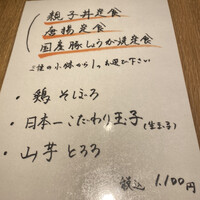 親子丼定食
唐揚定食
国産豚しょうが焼定食
三種の小鉢から1つお選び下さい
・鶏そぼろ
・日本一こだわり玉子(生玉子)
・山芋とろろ
税込 1.100円